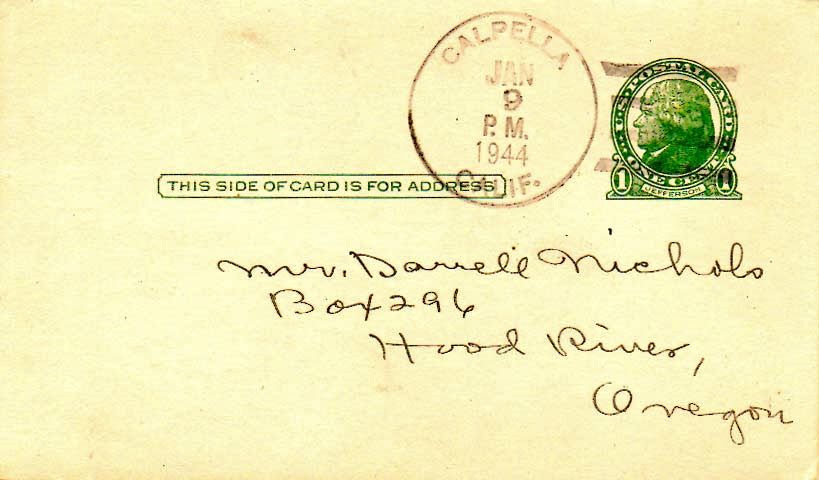 CALPELLA
JAN
9
P.M.
1944
CALIF.
U.S. POSTAL CARD
ONE CENT
1 JEFFERSON 1
THIS SIDE OF CARD IS FOR ADDRESS
Mr. Darrell Nichols
Box 296
Hood River,
Oregon